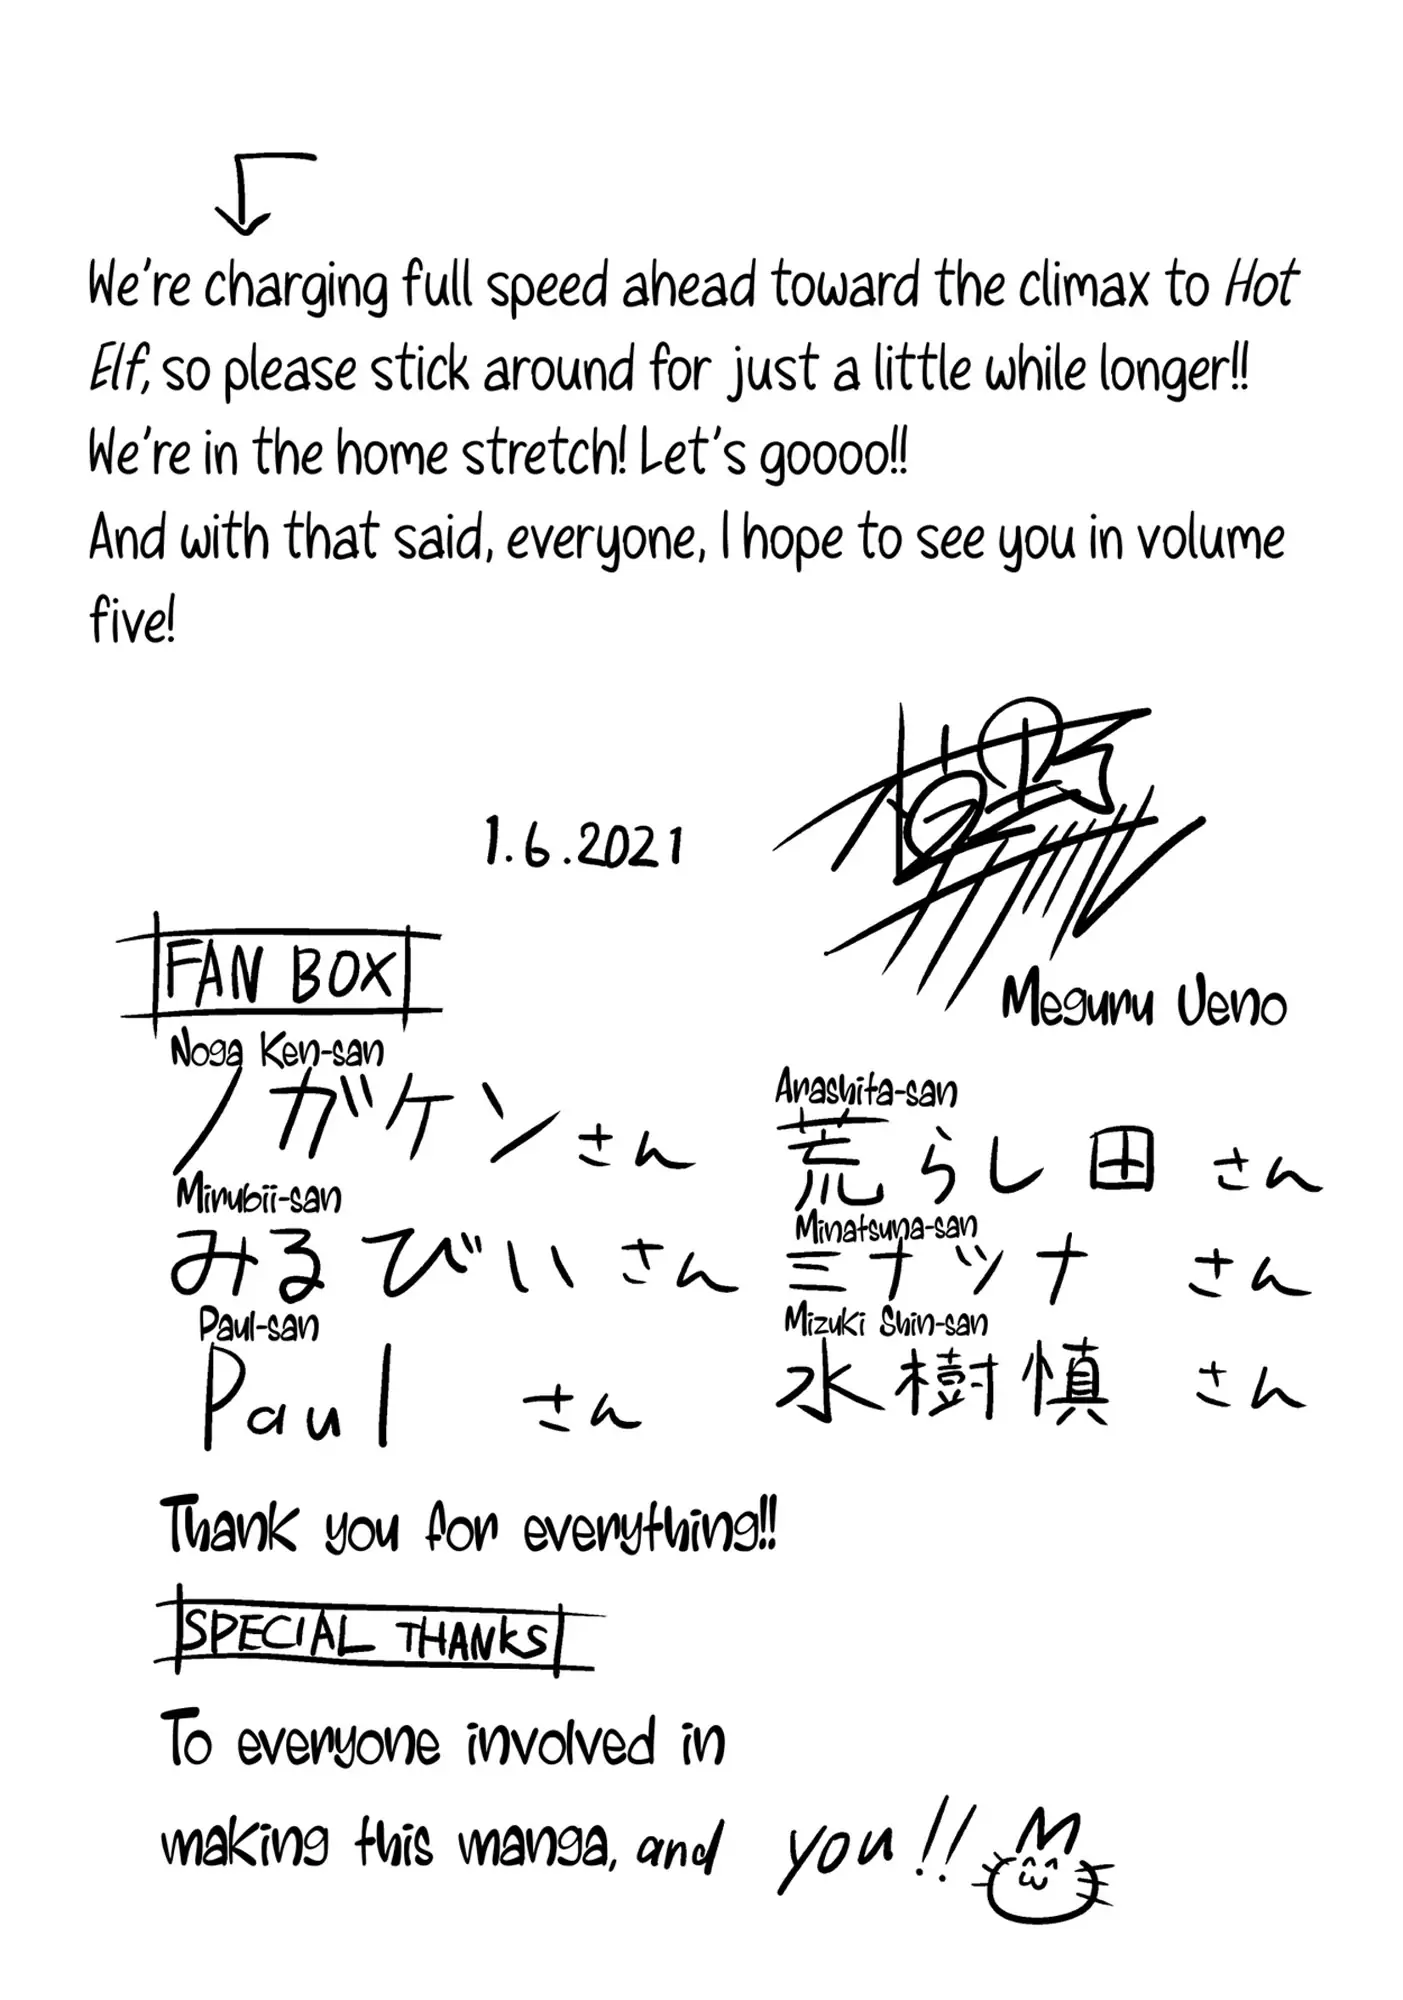 We're charging full speed ahead toward the climax to Hot
Elf, so please stick around for just a little while longer!!
We're in the home stretch! Let's goooo!!
And with that said, everyone, I hope to see you in volume
five!
1.6.2021
Meguru Ueno
FAN BOX
Noga Ken-san
ノガケンさん
Mirubii-san
みるびぃさん
Paul-san
Paul さん
Arashita-san
荒らし田さん
Minatsuna-san
ミナツナ さん
Mizuki Shin-san
水樹慎 さん
Thank you for everything!!
SPECIAL THANKS
To everyone involved in
making this manga, and you!!